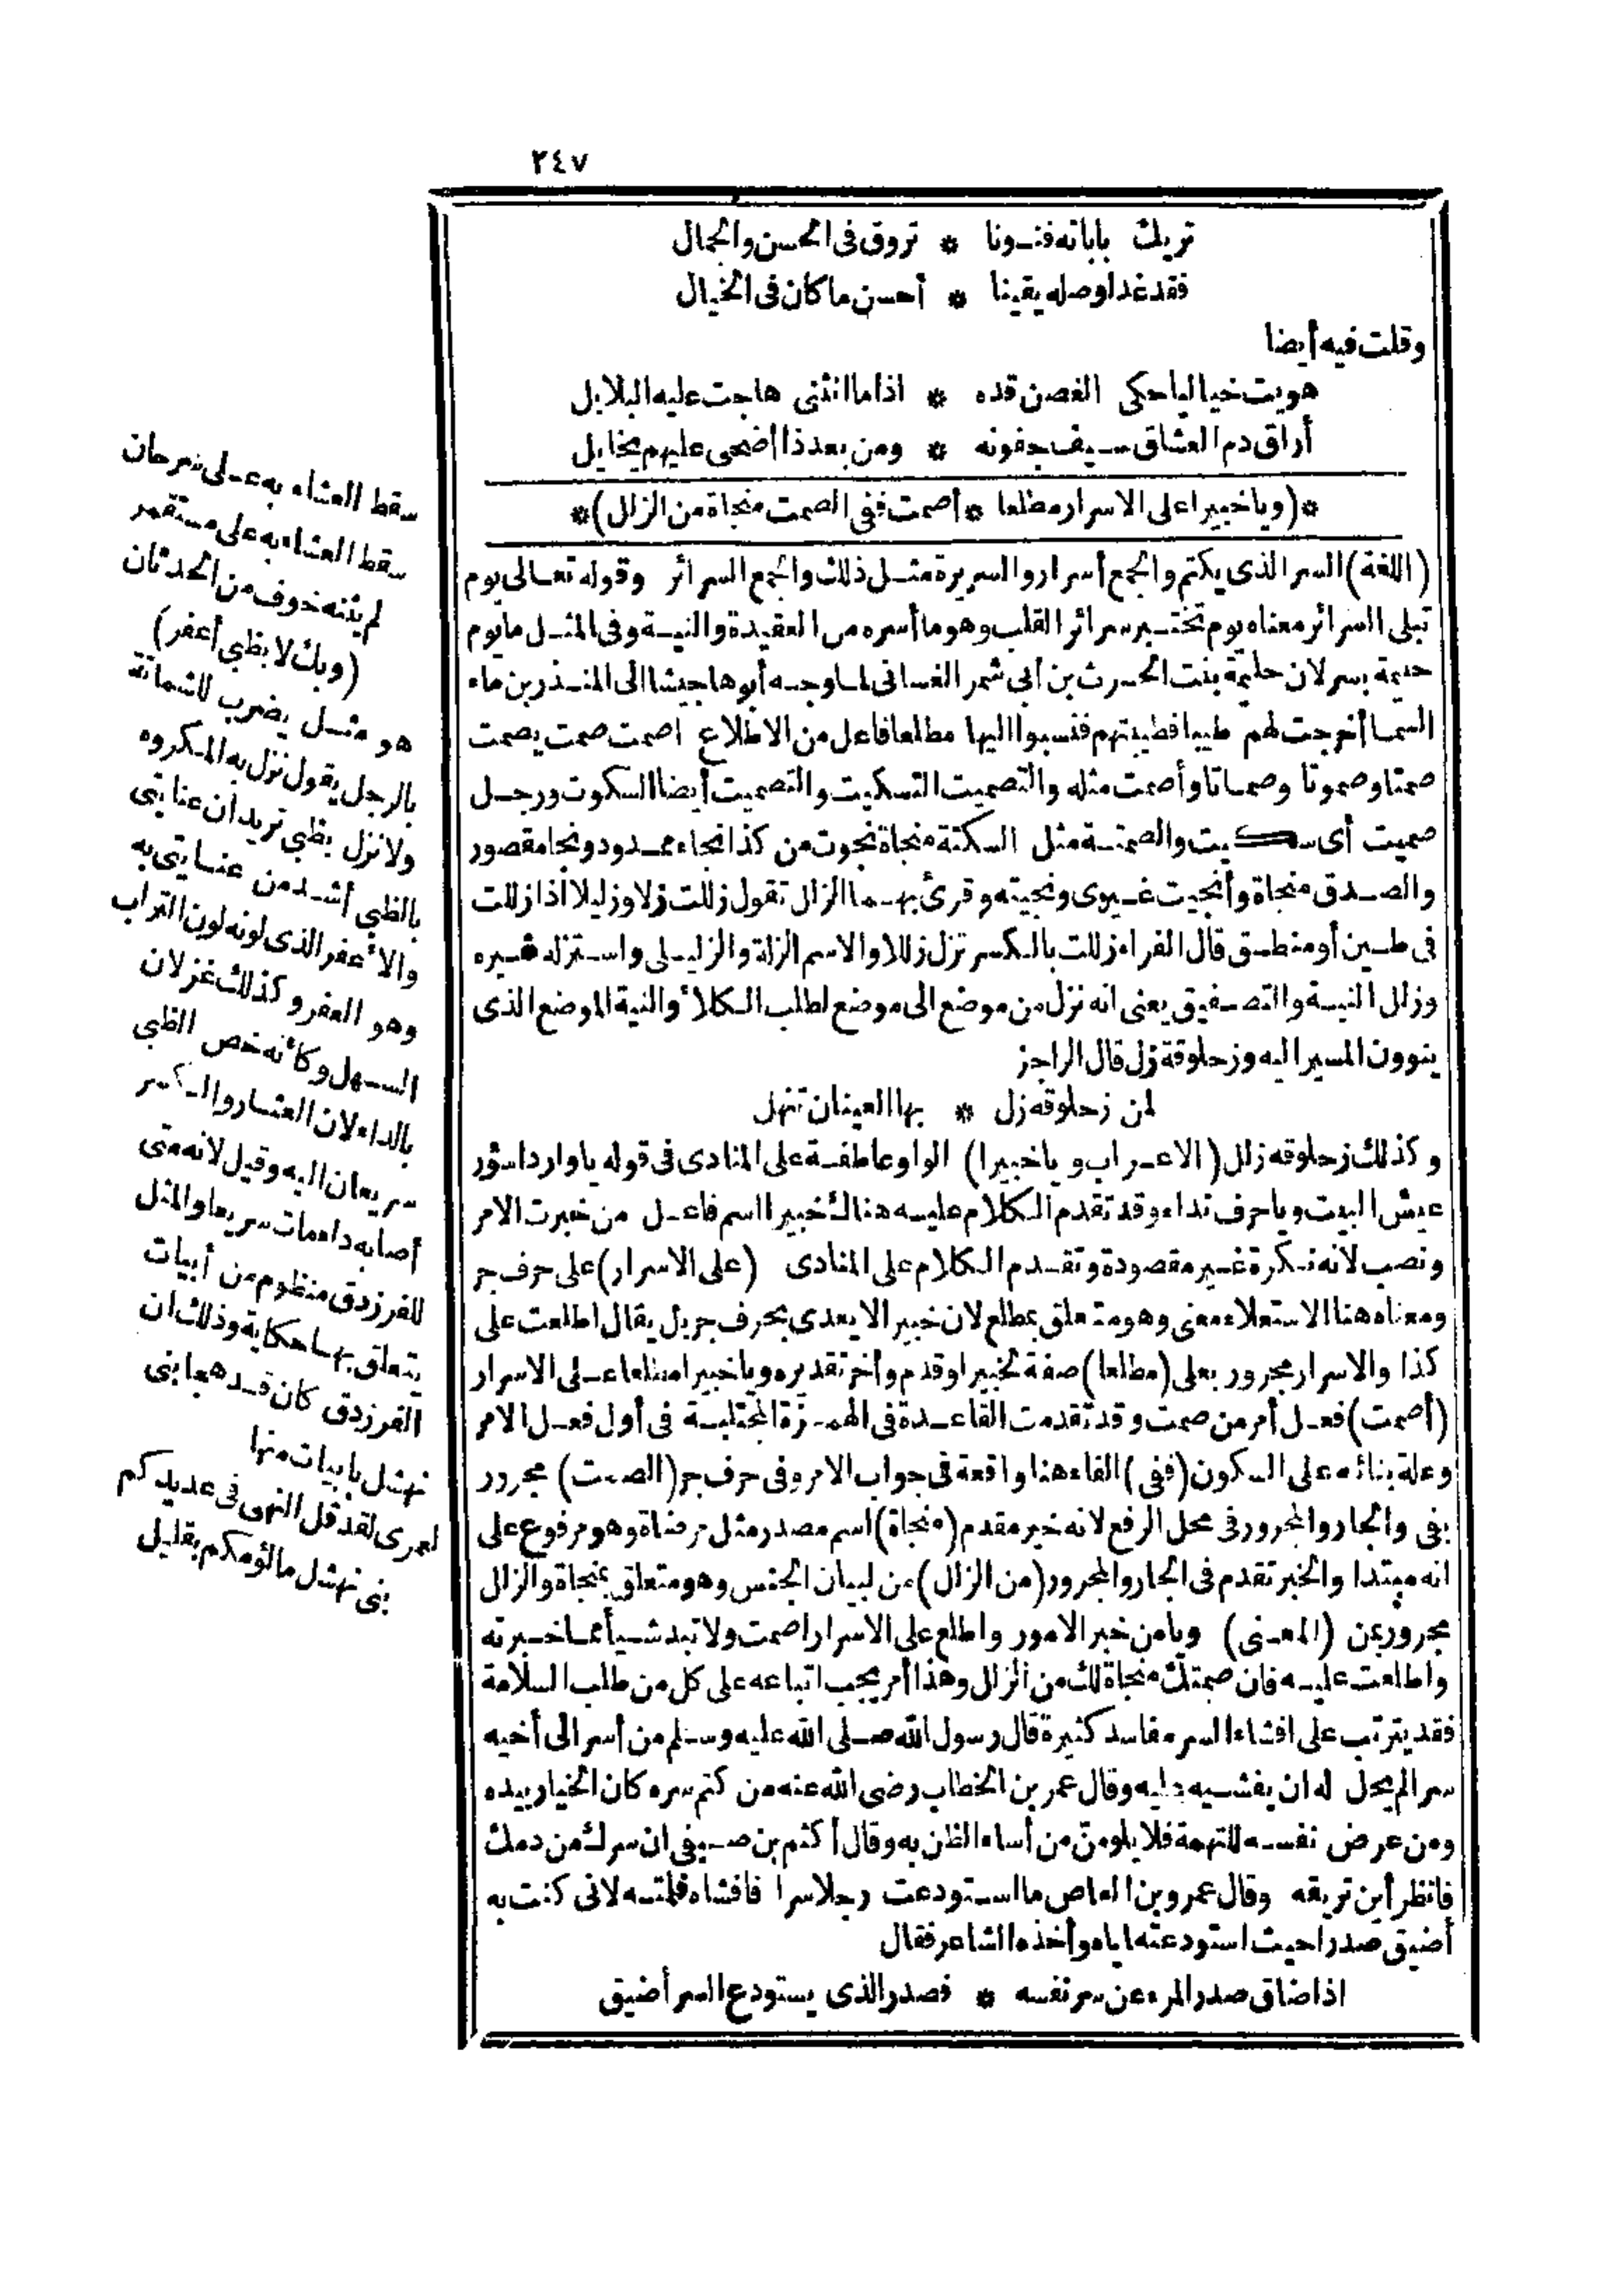 ٢٤٧
تريك باباته فنونا * تروق فى الحسن والجمال
فقد غدا وصله يقينا * أحسن ما كان فى الخيال
وقلت فيه أيضا
هويت خياليا حكى الغصن قده * اذا ما انثنى هاجت عليه البلابل
أراق دم العشاق سيف جفونه * ومن بعد ذا أضحى عليهم يخايل
*(ويا خبيرا على الاسرار مطلعا * أصمت ففى الصمت منجاة من الزلل)*
(اللغة) السر الذى يكتم والجمع أسرار والسريرة مثل ذلك والجمع السرائر وقوله تعالى يوم
تبلى السرائر معناه يوم تختبر سرائر القلب وهو ما أسره من العقيدة والنية وفى المثل ما يوم
حليمة بسر لان حليمة بنت الحرث بن أبى شمر الغسانى لما وجه أبوها جيشا الى المنذر بن ماء
السما أخرجت لهم طيبا فطيبتهم فنسبوا اليها مطلعا فاعل من الاطلاع اصمت صمت يصمت
صمتا وصموتا وصماتا وأصمت مثله والتصميت التسكيت والتصميت أيضا السكوت ورجل
صميت أى سكيت والصمتة مثل السكتة منجاة نجوت من كذا نجاء ممدود ونجا مقصور
والصدق منجاة وأنجيت غيرى ونجيته وقرئ بهما الزلل تقول زللت زلا وزليلا أذا زللت
فى طين أو منطق قال الفراء زللت بالكسر تزل زللا والاسم الزلة والزليلى واستزله غيره
وزلل النية والتصفيق يعنى انه نزل من موضع الى موضع لطلب الكلأ والنية الموضع الذى
ينوون المسير اليه وزحلوقة زل قال الراجز
لمن زحلوقه زل * بها العينان تنهل
وكذلك زحلوقه زلل (الاعراب ويا خبيرا) الواو عاطفة على المنادى فى قوله يا واردا سؤر
عيش البيت ويا حرف نداء وقد تقدم الكلام عليه هناك خبيرا اسم فاعل من خبرت الامر
ونصب لانه نكرة غير مقصودة وتقدم الكلام على المنادى (على الاسرار) على حرف جر
ومعناه هنا الاستعلاء معنى وهو متعلق بمطلع لان خبيرا لا يعدى بحرف جر بل يقال اطلعت على
كذا والاسرار مجرور بعلى (مطلعا) صفة لخبيرا وقدم وأخر تقديره ويا خبيرا مطلعا على الاسرار
(أصمت) فعل أمر من صمت وقد تقدمت القاعدة فى الهمزة المجتلبة فى أول فعل الامر
وعلة بنائه على السكون (ففى) الفاء هنا واقعة فى جواب الامر وفى حرف جر (الصمت) مجرور
بفى والجار والمجرور فى محل الرفع لانه خبر مقدم (منجاة) اسم مصدر مثل مرضاة وهو مرفوع على
انه مبتدا والخبر تقدم فى الجار والمجرور (من الزلل) من لبيان الجنس وهو متعلق بمنجاة والزلل
مجرور بمن (المعنى) ويا من خبر الامور واطلع على الاسرار اصمت ولا تبد شيأ مما خبرته
واطلعت عليه فان صمتك منجاة لك من الزلل وهذا أمر يجب اتباعه على كل من طلب السلامة
فقد يترتب على افشاء السر مفاسد كثيرة قال رسول الله صلى الله عليه وسلم من أسر الى أخيه
سرا لم يحل له ان يفشيه عليه وقال عمر بن الخطاب رضى الله عنه من كتم سره كان الخيار بيده
ومن عرض نفسه للتهمة فلا يلومن من أساء الظن به وقال أكثم بن صيفى ان سرك من دمك
فانظر أين تريقه وقال عمرو بن العاص ما استودعت رجلا سرا فافشاه فلمته لانى كنت به
أضيق صدرا حيث استودعته اياه وأخذه الشاعر فقال
اذا ضاق صدر المرء عن سر نفسه * فصدر الذى يستودع السر أضيق
سقط العشاء به على سرحان
سقط العشاء به على مستقمر
لم يثنه خوف من الحدثان
(وبك لا بظبى أعفر)
هو مثل يضرب للشماتة
بالرجل يقول نزل به المكروه
ولا نزل بظبى تريد ان عنايتى
بالظبى أشد من عنايتى به
والأعفر الذى لونه لون التراب
وهو العفر وكذلك غزلان
السهل وكأنه خص الظبى
بالداء لان العثار والكسر
سريعان اليه وقيل لانه متى
أصابه داء مات سريعا والمثل
للفرزدق منظوم من أبيات
يتعلق بها حكاية وذلك ان
الفرزدق كان قد هجا بنى
نهشل بابيات منها
لعمرى لقد قل النهى فى عديدكم
بنى نهشل ما لؤمكم بقليل